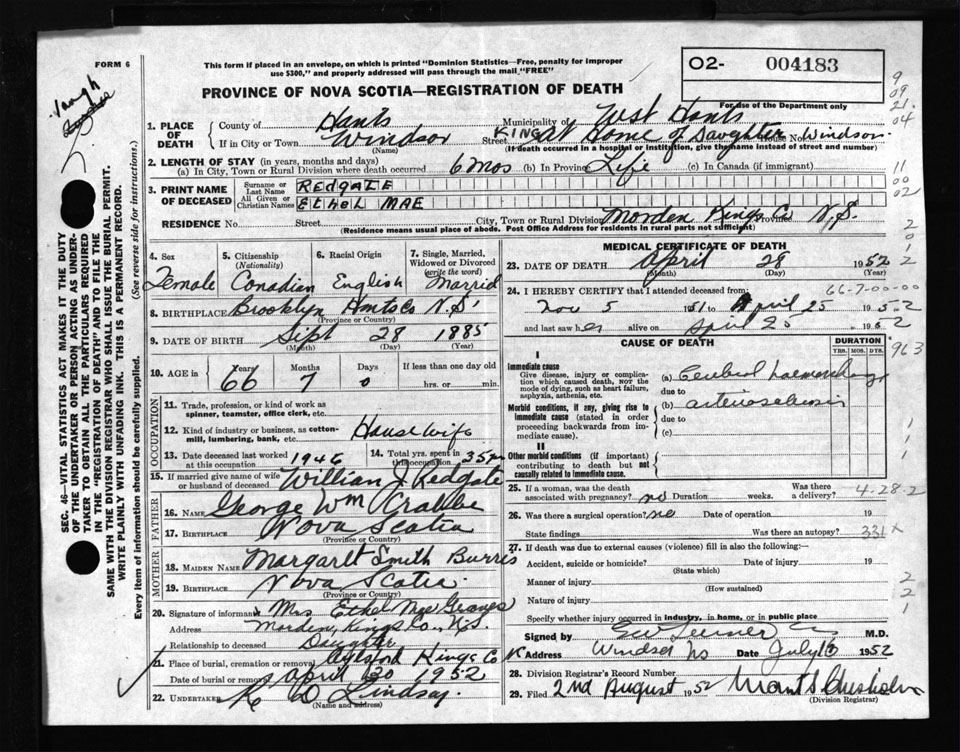 FORM 6
This form if placed in an envelope, on which is printed "Dominion Statistics—Free, penalty for improper
use $300," and properly addressed will pass through the mail "FREE"
PROVINCE OF NOVA SCOTIA—REGISTRATION OF DEATH
O2- 004183
For use of the Department only
SEC. 46—VITAL STATISTICS ACT MAKES IT THE DUTY
OF THE UNDERTAKER OR PERSON ACTING AS UNDER-
TAKER TO OBTAIN ALL THE PARTICULARS REQUIRED
IN THE "REGISTRATION OF DEATH" AND TO FILE THE
SAME WITH THE DIVISION REGISTRAR WHO SHALL ISSUE THE BURIAL PERMIT.
WRITE PLAINLY WITH UNFADING INK. THIS IS A PERMANENT RECORD.
Every item of information should be carefully supplied. (See reverse side for instructions.)
1. PLACE OF DEATH County of Hants Municipality of West Hants
If in City or Town Windsor (Name) Street KING at Home of Daughter No Windsor
(If death occurred in a hospital or institution, give the name instead of street and number)
2. LENGTH OF STAY (in years, months and days)
(a) In City, Town or Rural Division where death occurred 6 mos (b) In Province Life (c) In Canada (if immigrant)
3. PRINT NAME OF DECEASED Surname or Last Name REDGATE
All Given or Christian Names ETHEL MAE
RESIDENCE No. Street City, Town or Rural Division Morden Kings Co Province N.S.
(Residence means usual place of abode. Post Office Address for residents in rural parts not sufficient)
4. Sex Female
5. Citizenship (Nationality) Canadian
6. Racial Origin English
7. Single, Married, Widowed or Divorced (write the word) Married
8. BIRTHPLACE Brooklyn Hants Co N.S.
(Province or Country)
9. DATE OF BIRTH Sept 28 1885
(Month) (Day) (Year)
10. AGE in Years 66 Months 7 Days 0 If less than one day old hrs. or min.
OCCUPATION
11. Trade, profession, or kind of work as spinner, teamster, office clerk, etc.
12. Kind of industry or business, as cotton-mill, lumbering, bank, etc. House Wife
13. Date deceased last worked at this occupation 1946
14. Total yrs. spent in this occupation 35 yrs
15. If married give name of wife or husband of deceased William J Redgate
FATHER
16. NAME George Wm Crabbe
17. BIRTHPLACE Nova Scotia
(Province or Country)
MOTHER
18. MAIDEN NAME Margaret Smith Burris
19. BIRTHPLACE Nova Scotia
(Province or Country)
20. Signature of informant x Mrs Ethel Mae Graves
Address Morden, Kings Co., N.S.
Relationship to deceased Daughter
21. Place of burial, cremation or removal Aylsford Kings Co
Date of burial or removal April 30 1952
22. UNDERTAKER Lindsay
(Name and address)
MEDICAL CERTIFICATE OF DEATH
23. DATE OF DEATH April 28 1952
(Month) (Day) (Year)
24. I HEREBY CERTIFY that I attended deceased from: 66-7-00-00
Nov 5 1951 to April 25 1952
and last saw her alive on April 25 1952
CAUSE OF DEATH
DURATION
YRS. MOS. DYS.
I
Immediate cause
Give disease, injury or complication which caused death, not the mode of dying, such as heart failure, asphyxia, asthenia, etc.
(a) Cerebral haemorrhage
due to
Morbid conditions, if any, giving rise to immediate cause (stated in order proceeding backwards from immediate cause).
(b) arteriosclerosis
due to
(c)
II
Other morbid conditions (if important) contributing to death but not causally related to immediate cause.
25. If a woman, was the death associated with pregnancy? no Duration weeks. Was there a delivery? 4-28-2
26. Was there a surgical operation? no Date of operation 19
State findings Was there an autopsy? 331X
27. If death was due to external causes (violence) fill in also the following:—
Accident, suicide or homicide? Date of injury 19
(State which)
Manner of injury
(How sustained)
Nature of injury
Specify whether injury occurred in industry, in home, or in public place
Signed by M.D.
Address Windsor NS Date July 1952
28. Division Registrar's Record Number
29. Filed 2nd August 1952 Chisholm
(Division Registrar)
9
09
21
04
11
00
02
2
0
1
2
2
963
1
1
1
2
2
1